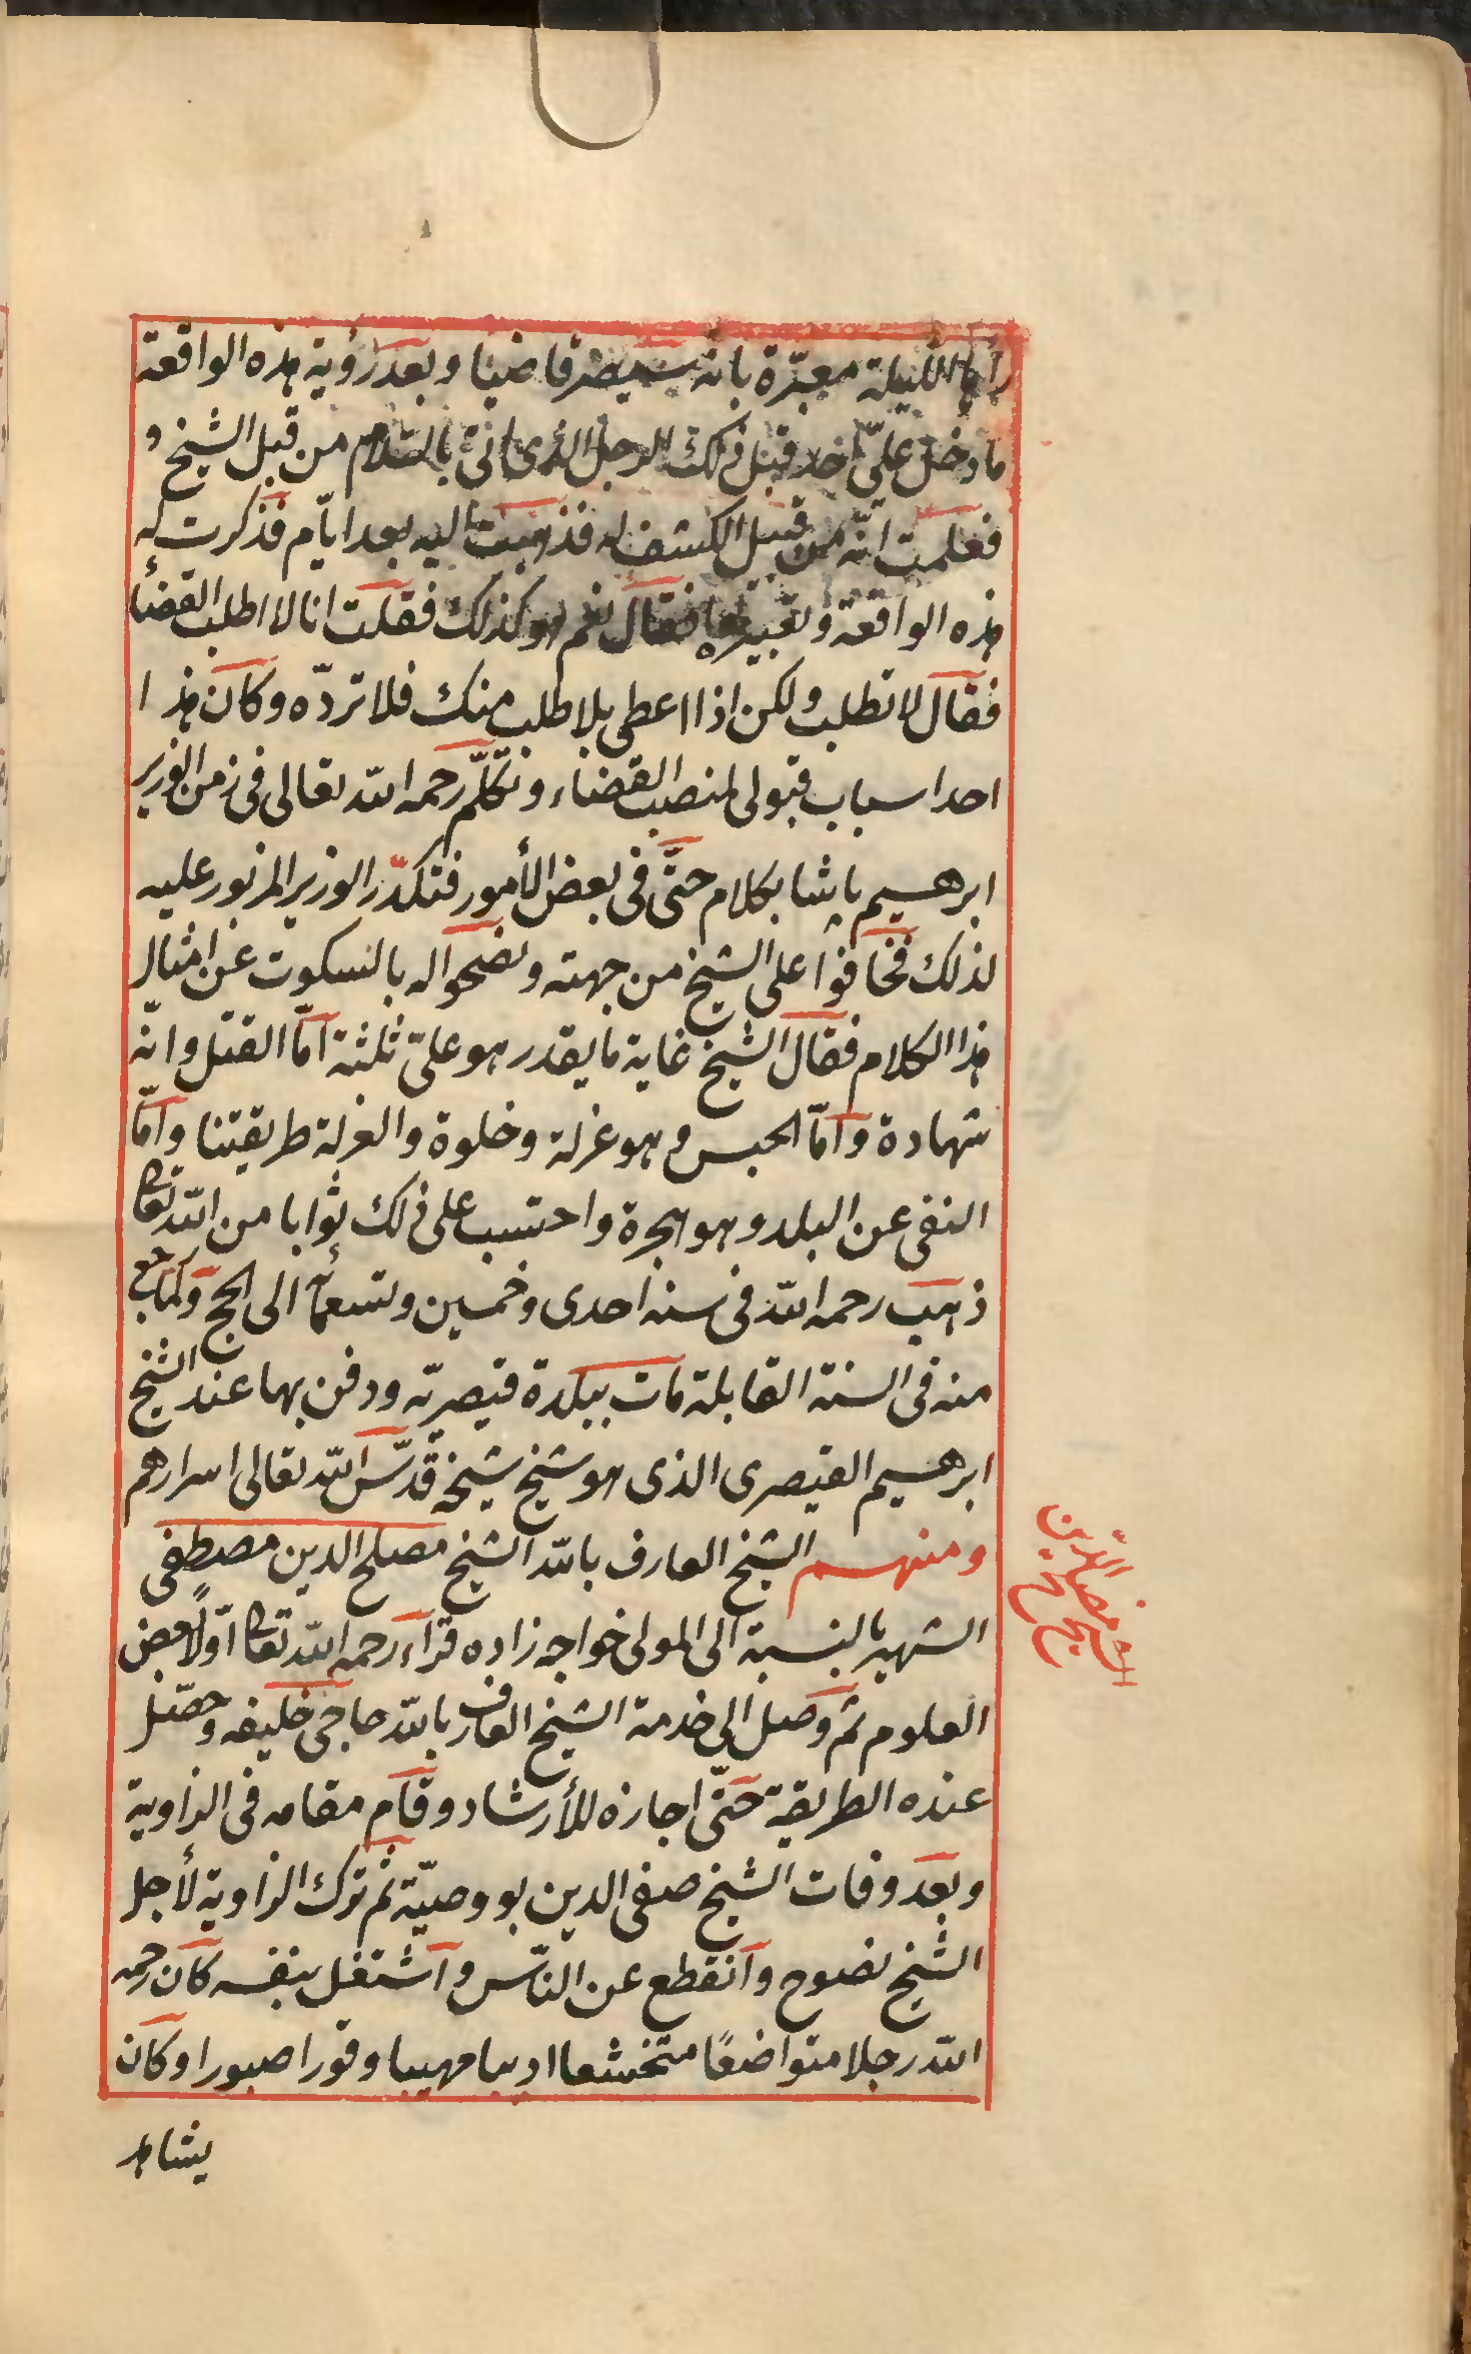 رأها الليلة معبّرة بانه سيصير قاضيا وبعد رؤية هذه الواقعة
ما دخل عليّ احد قبل ذلك الرجل الذى اتى بالسلام من قبل الشيخ و
فعلمت انّه من قبيل الكشف له فذهبت اليه بعد ايّام فذكرت له
هذه الواقعة وتعبيرها فقال نعم هو كذلك فقلت انا لا اطلب القضأ
فقال لا تطلب ولكن اذا اعطى بلا طلب منك فلا تردّه وكان هذا
احد اسباب قبولى لمنصب القضاء وتكلّم رحمه الله تعالى فى زمن الوزير
ابرهيم باشا بكلام حتّى فى بعض الأمور فتكدّر الوزير المزبور عليه
لذلك فخافوا على الشيخ من جهته ونصحوا له بالسكوت عن امثال
هذا الكلام فقال الشيخ غاية ما يقدر هو علىّ ثلثة امّا القتل وانّه
شهادة وامّا الحبس وهو عزلة وخلوة والعزلة طريقتنا وامّا
النفى عن البلد وهو هجرة واحتسب على ذلك ثوابا من الله تعا
ذهب رحمه الله فى سنه احدى وخمسين وتسعمأة الى الحج ولمّا رجع
منه فى السنة القابلة مات ببلدة قيصريّه ودفن بها عند الشيخ
ابرهيم القيصرى الذى هو شيخ شيخه قدّس الله تعالى اسرارهم
ومنهم الشيخ العارف بالله الشيخ مصلح الدين مصطفى
الشهير بالنسبة الى المولى خواجه زاده قرأء رحمه الله تعا اوّلاً بعض
العلوم ثم وصل الي خدمة الشيخ العارف بالله حاجى خليفه وحصّل
عنده الطريقة حتّى اجازه للأرشاد وقام مقامه فى الزاوية
وبعد وفات الشيخ صفى الدين بو وصيّة ثم ترك الزاوية لأجل
الشيخ نصوح وانقطع عن النّاس واشتغل بنفسه كان رحمه
الله رجلا متواضعًا متخشعا اديبا مهيبا وقورا صبورا وكان
يشاهد
الشيخ مصلح الدين